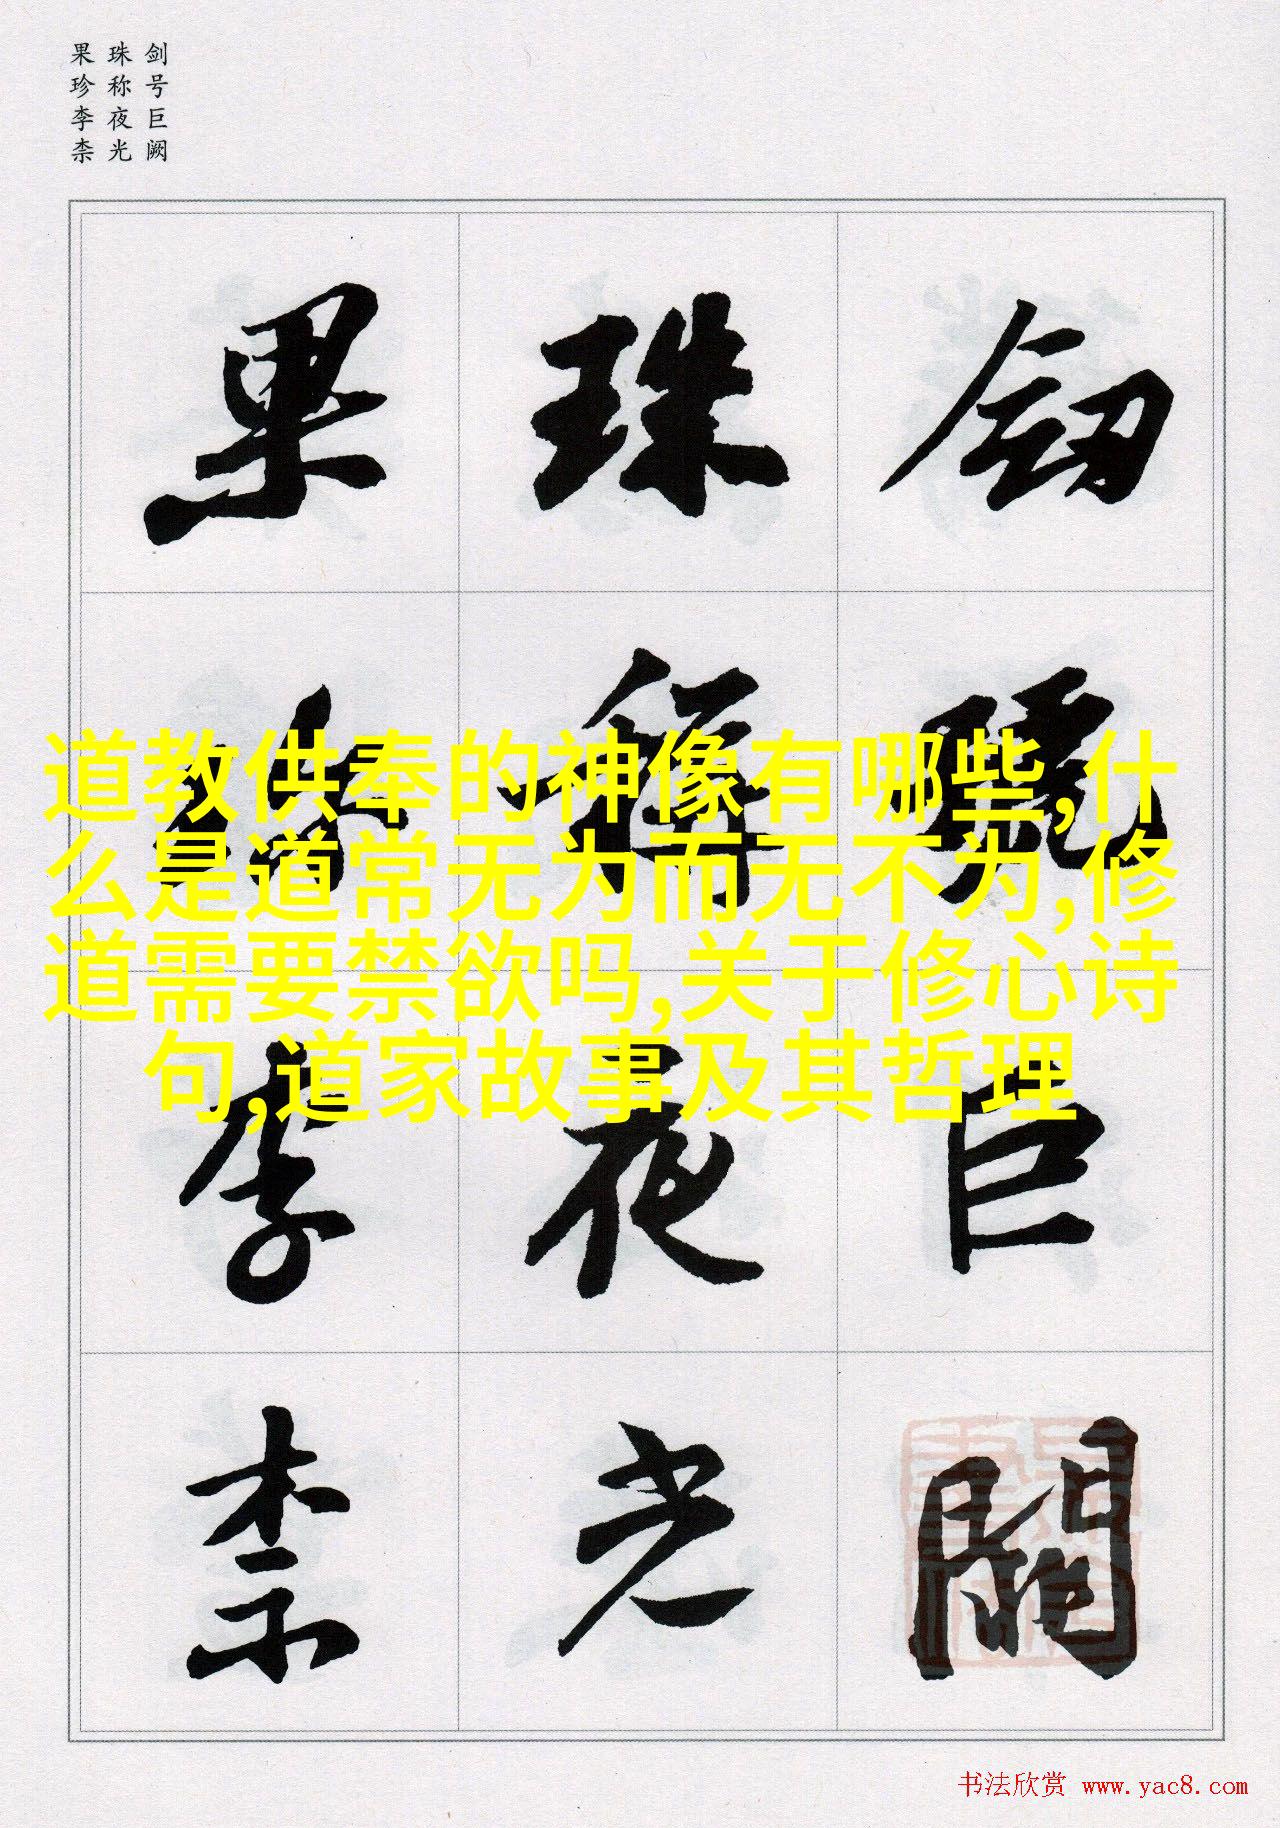 剑号巨阙
珠称夜光
果珍李柰
釼號巨闕
珠稱夜光
果珎李柰
道教供奉的神像有哪些,什
么是道常无为而无不为,修
道需要禁欲吗,关于修心诗
句,道家故事及其哲理
书法欣赏 www.yac8.com